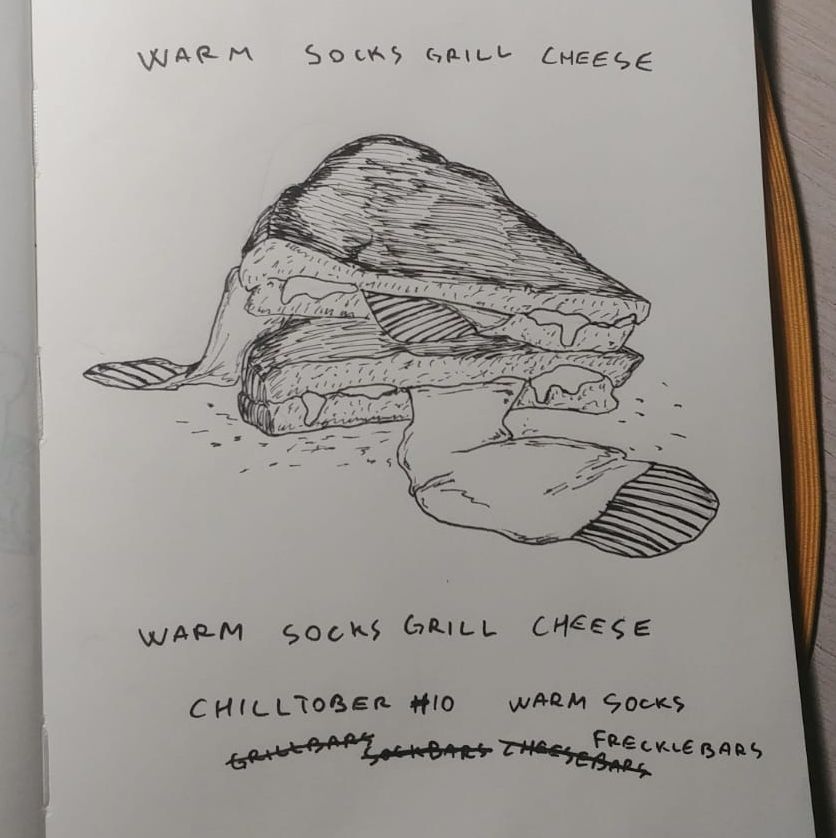 WARM SOCKS GRILL CHEESE
WARM SOCKS GRILL CHEESE
CHILLTOBER #10 WARM SOCKS
GRILLBARS SOCKBARS CHEESEBARS FRECKLEBARS